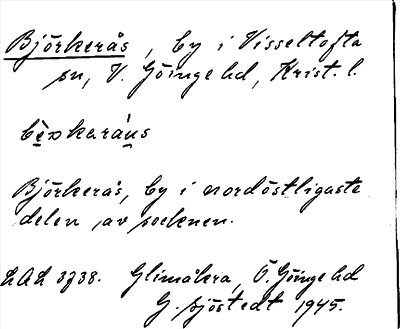 Björkerås, by i Visseltofta
sn, V. Göinge hd, Krist. l.
Björkerås, by i nordöstligaste
delen av socknen.
LAL 3738. Glimåkra, Ö. Göinge hd
G. Sjöstedt 1945.